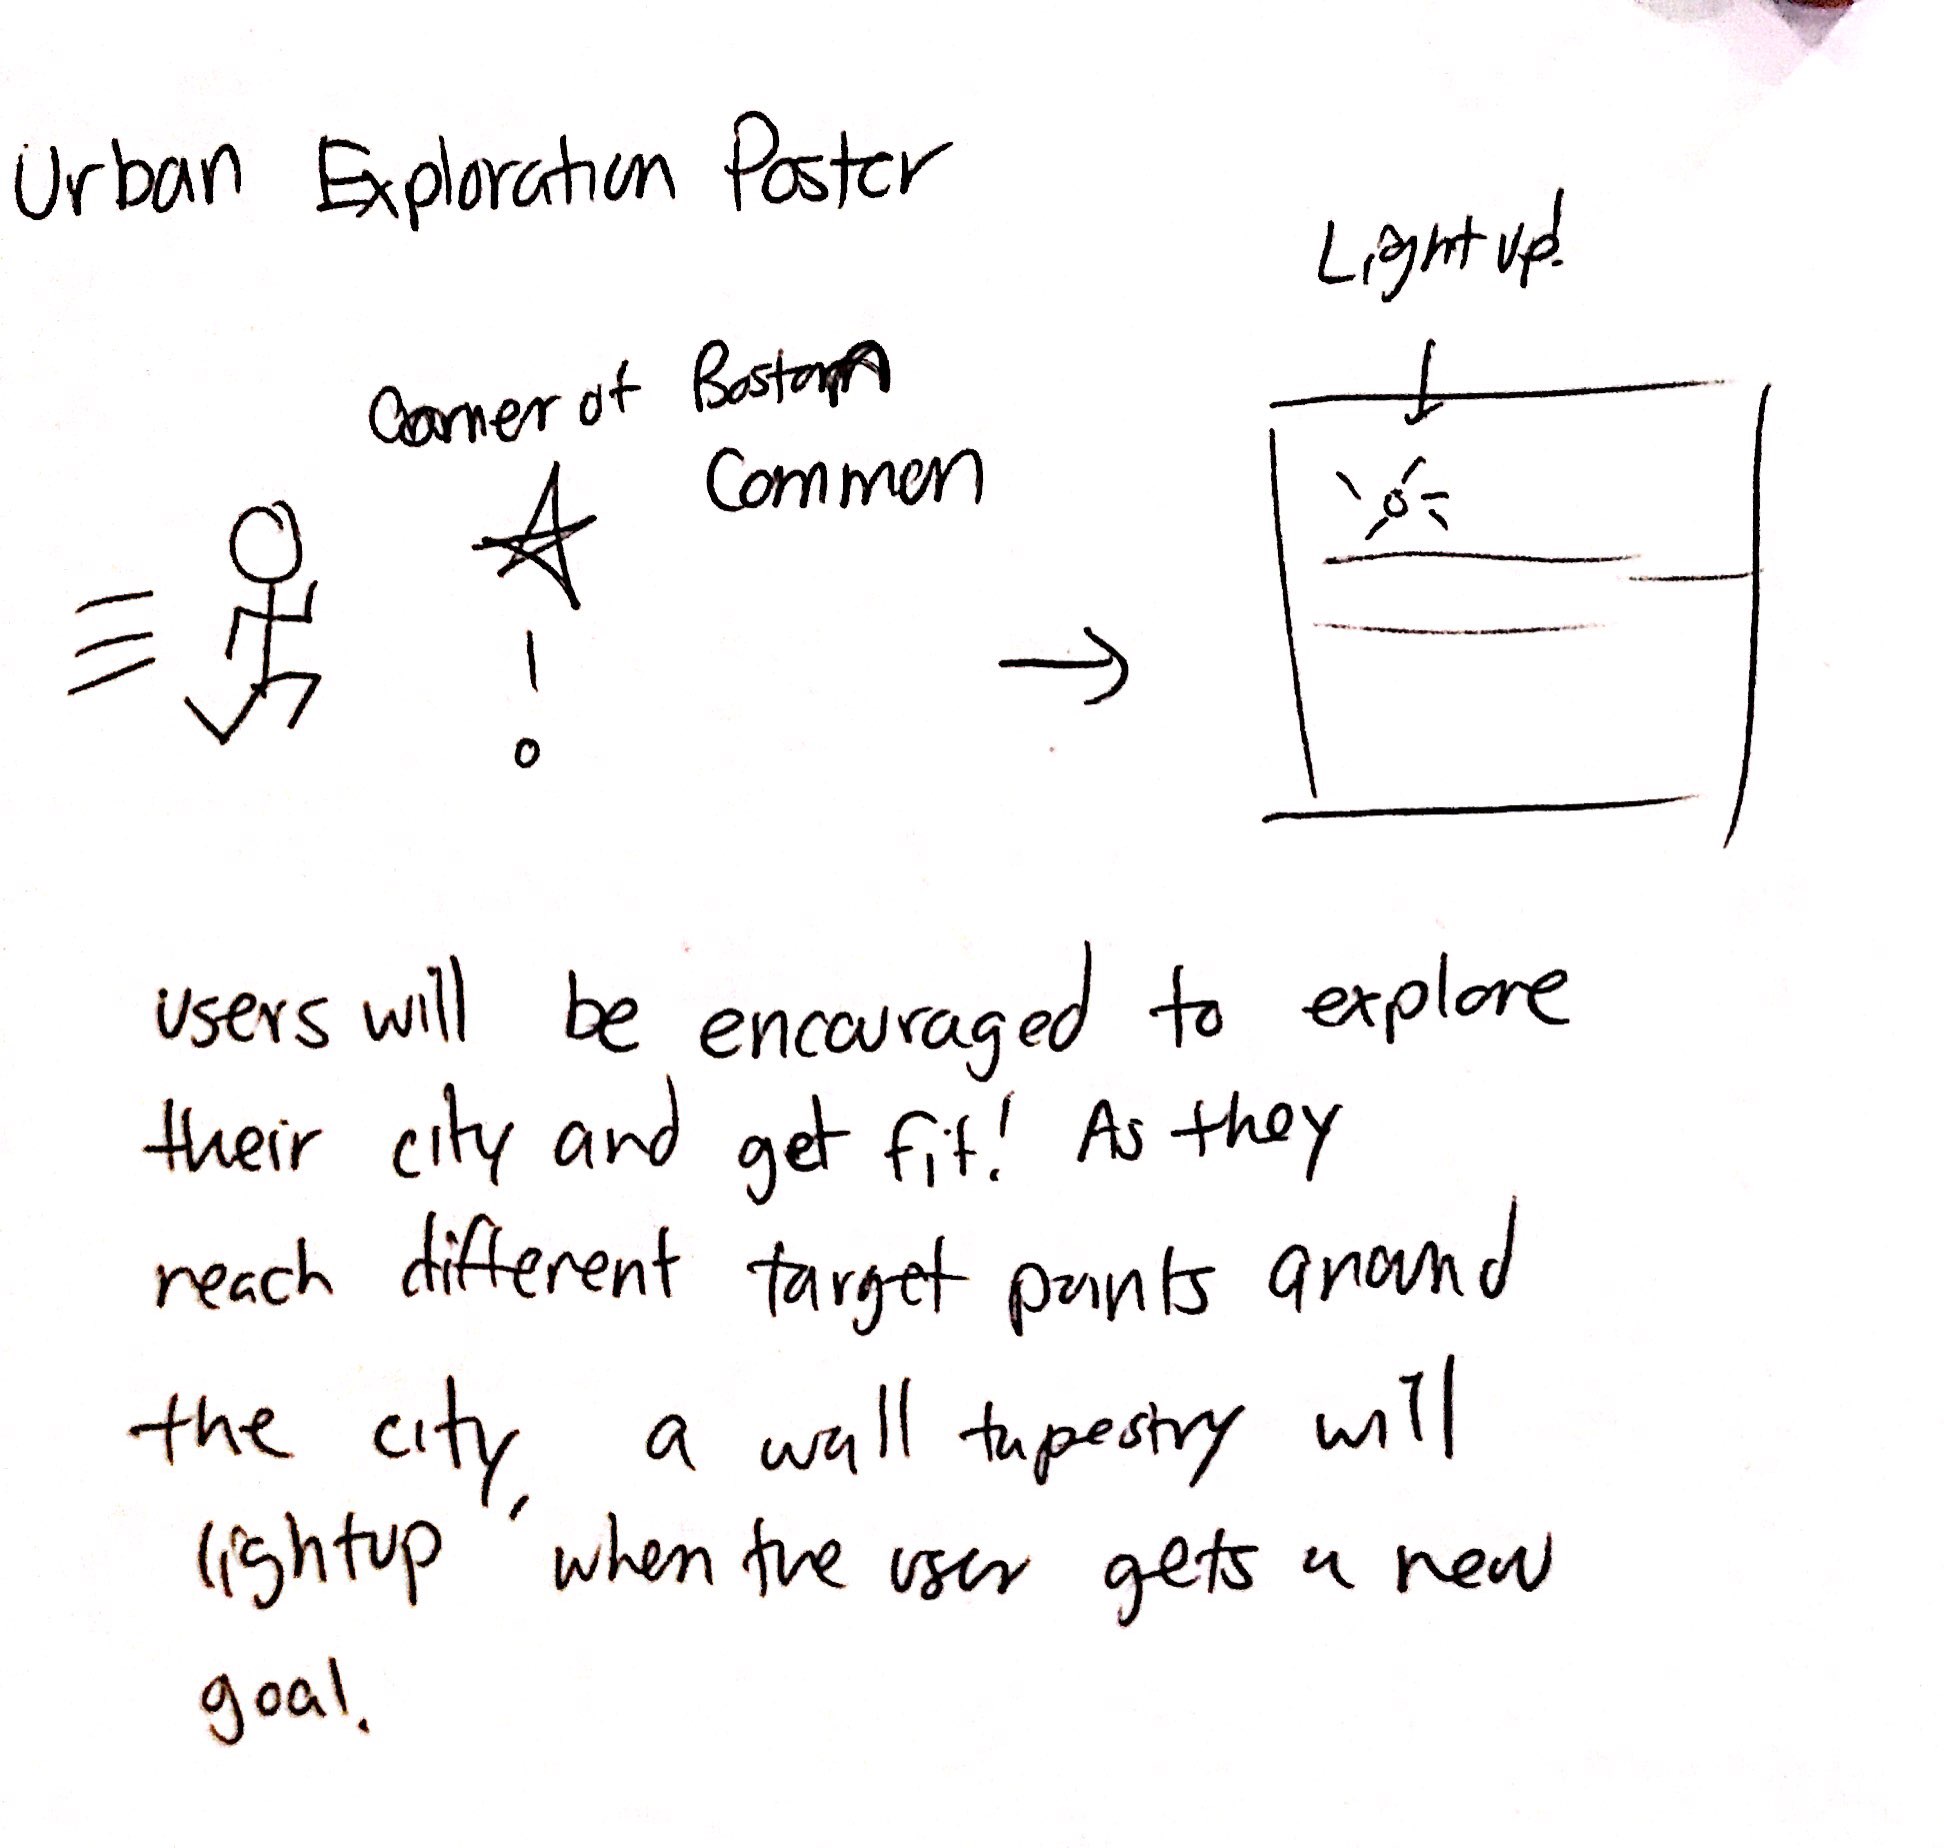 Urban Exploration Poster
Light up!
Corner of Boston
Common
users will be encouraged to explore
their city and get fit! As they
reach different target points around
the city, a wall tapestry will
lightup when the user gets a new
goal.